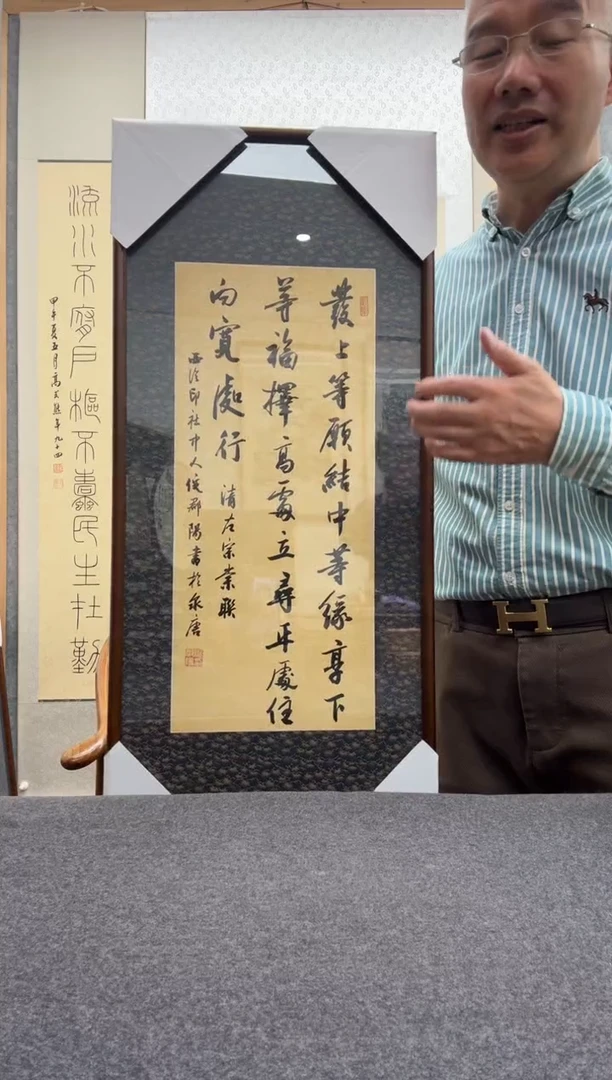 發上等願結中等緣享下
等福擇高處立尋平處住
向寬處行
清左宗棠聯
西泠印社中人陽書於泉唐
流水不腐戶樞不蠹民生在勤
甲午夏五月高式熊年九十四